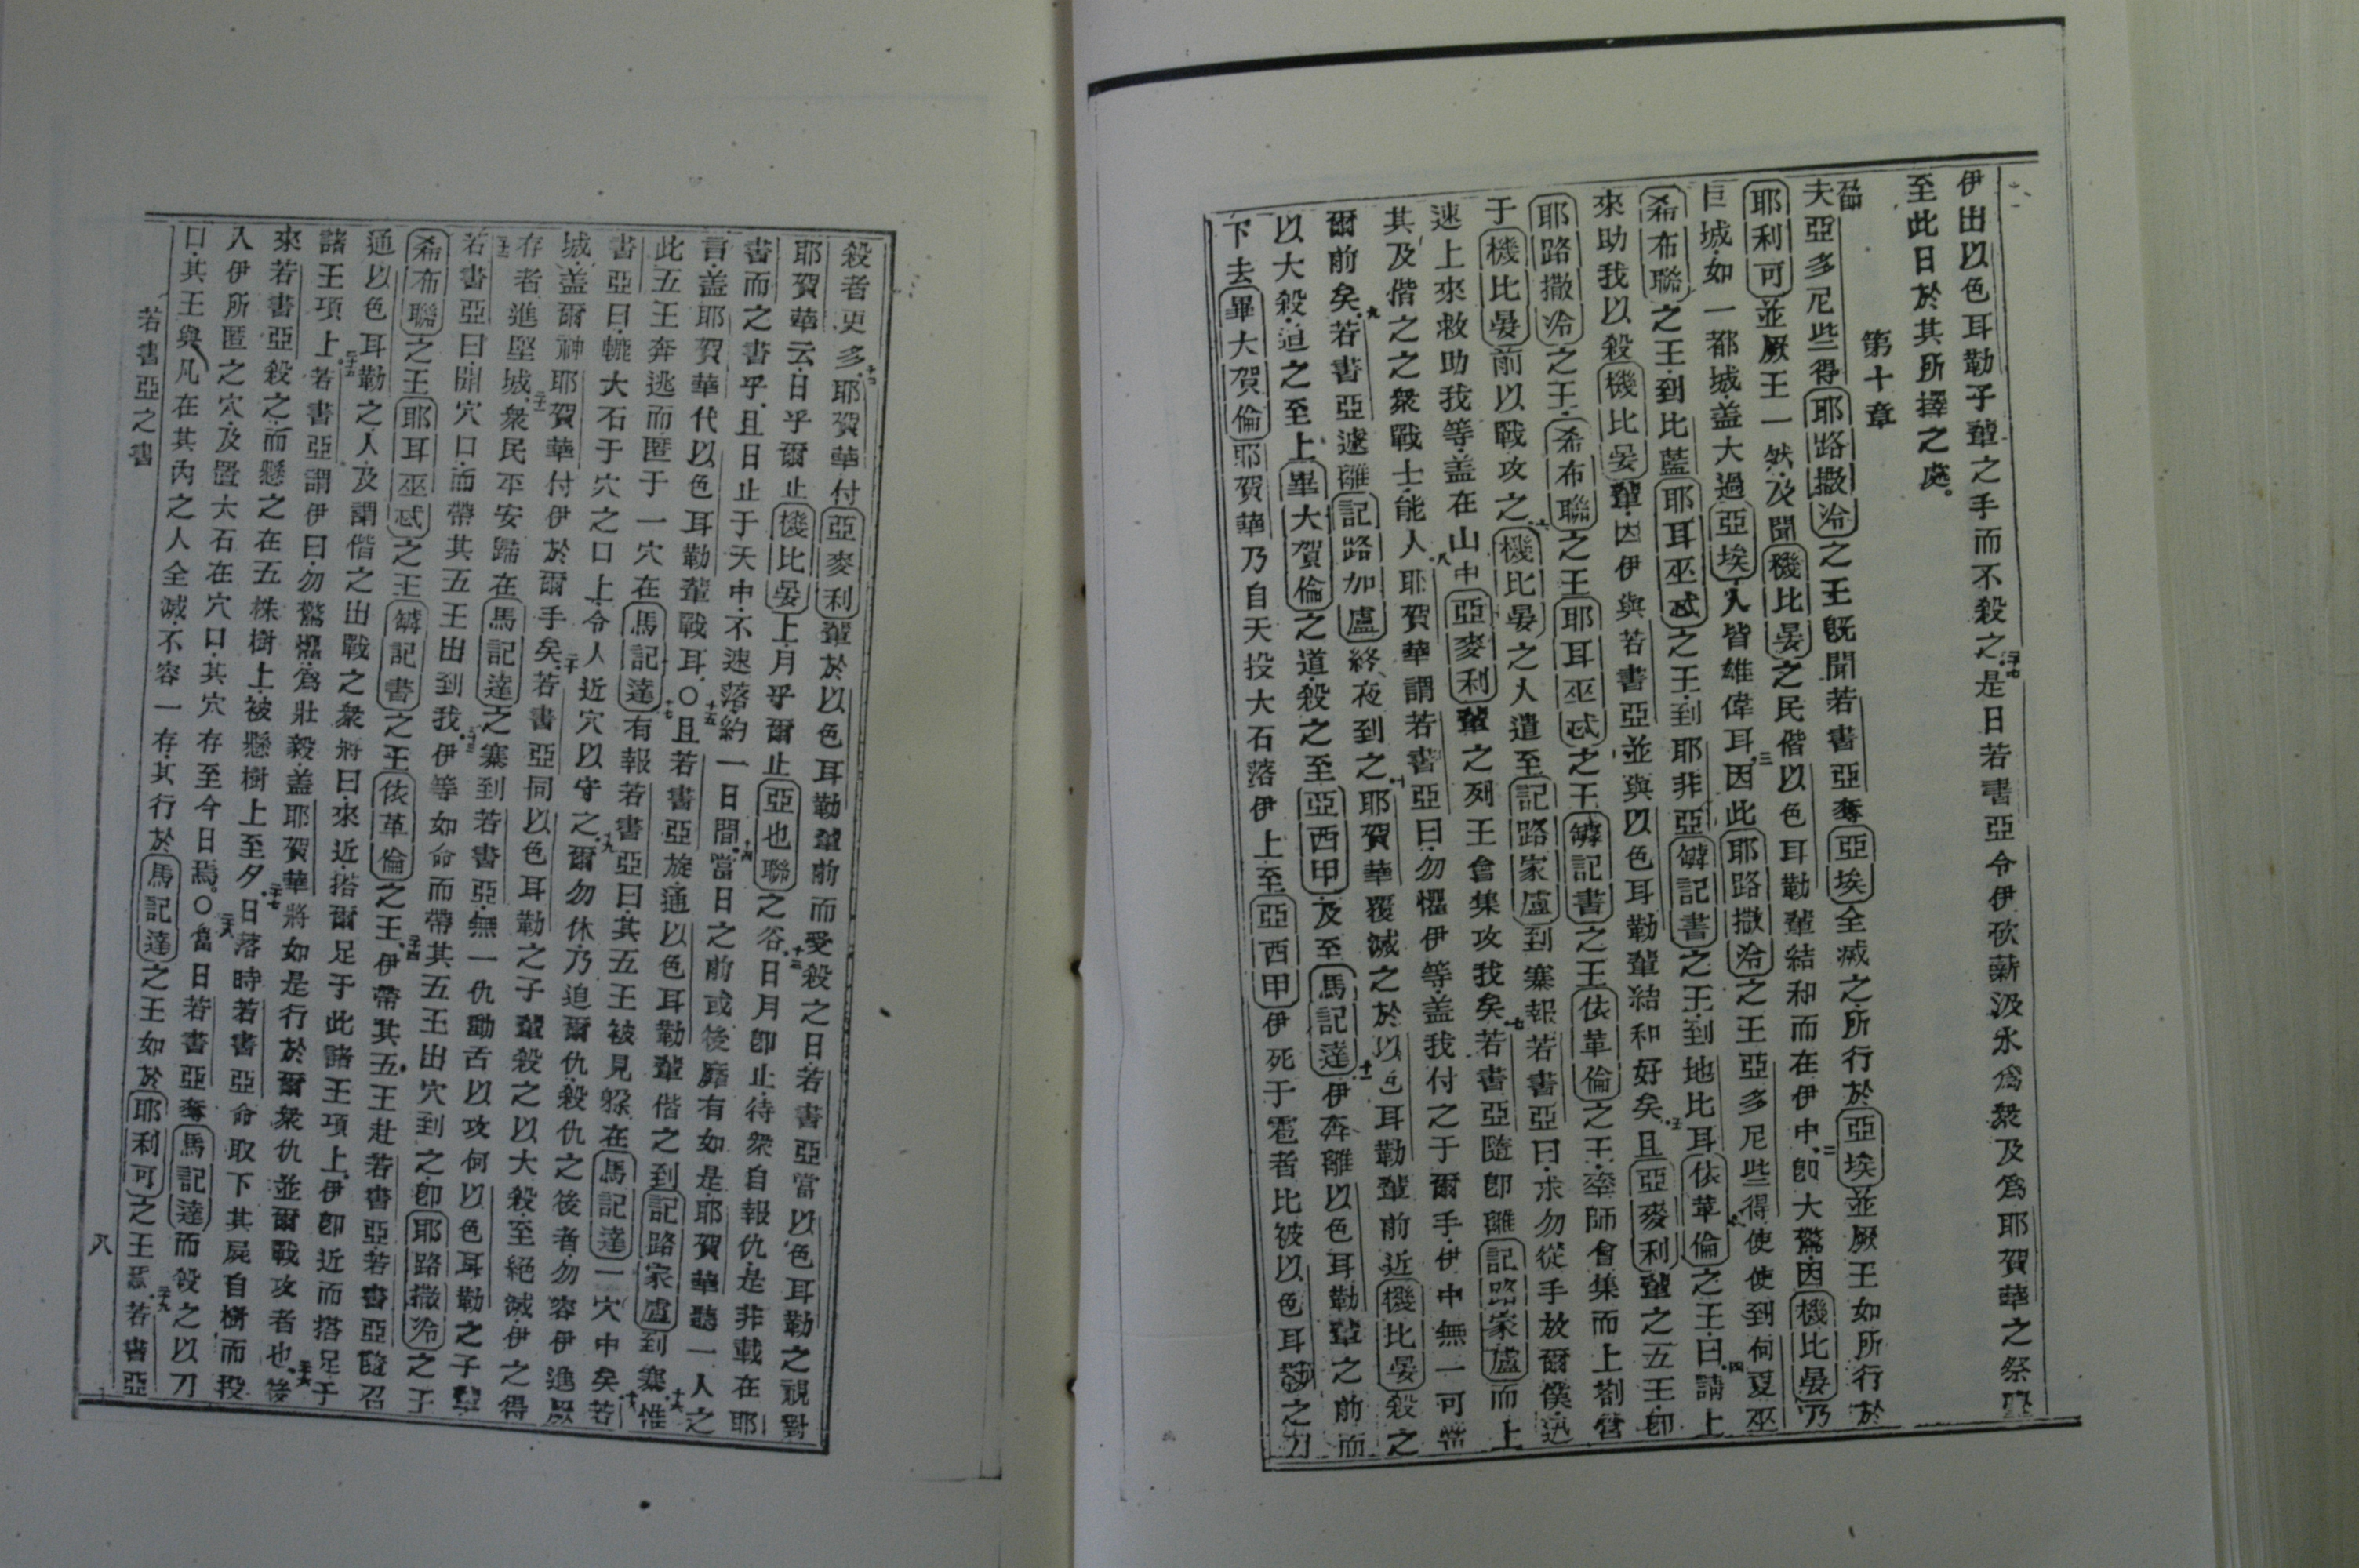 伊出以色耳勒子輩之手而不殺之二十七是日若書亞令伊砍薪汲水為衆及為耶賀華之祭
至此日於其所擇之處
第十章
一節夫亞多尼些得耶路撒冷之王旣聞若書亞奪亞埃全滅之所行於亞埃並厥王如所行於
耶利可並厥王一然及聞機比晏之民偕以色耳勒輩結和而在伊中二卽大驚因機比晏乃
巨城如一都城盖大過亞埃人皆雄偉耳三因此耶路撒冷之王亞多尼些得使使到何夏巫
希布聯之王到比藍耶耳巫忒之王到耶非亞罅記書之王到地比耳依革倫之王曰四請上
來助我以殺機比晏輩因伊與若書亞並與以色耳勒輩結和好矣五且亞麥利輩之五王卽
耶路撒冷之王希布聯之王耶耳巫忒之王罅記書之王依革倫之王率師會集而上劄營
于機比晏前以戰攻之六機比晏之人遣至記路家盧到寨報若書亞曰求勿從手放爾僕迅
速上來救助我等盖在山中亞麥利輩之列王會集攻我矣七若書亞隨卽離記路家盧而上
其及偕之之衆戰士能人八耶賀華謂若書亞曰勿懼伊等盖我付之于爾手伊中無一可當
爾前矣九若書亞遽離記路加盧終夜到之十耶賀華覆滅之於以色耳勒輩前近機比晏殺之
以大殺追之至上畢大賀倫之道殺之至亞西甲及至馬記達十一伊奔離以色耳勒輩之前而
下去畢大賀倫耶賀華乃自天投大石落伊上至亞西甲伊死于雹者比被以色耳勒之刀
殺者更多十二耶賀華付亞麥利輩於以色耳勒輩前而受殺之日若書亞當以色耳勒之視對
耶賀華云日乎爾止機比晏上月乎爾止亞也聯之谷十三日月卽止待衆自報仇是非載在耶
書而之書乎且日止于天中不速落約一日間十四當日之前或後靡有如是耶賀華聽一人之
言盖耶賀華代以色耳勒輩戰耳〇十五且若書亞旋通以色耳勒輩偕之到記路家盧到寨十六惟
此五王奔逃而匿于一穴在馬記達十七有報若書亞曰其五王被見躱在馬記達一穴中矣十八若
書亞曰轆大石于穴之口上令人近穴以守之十九爾勿休乃追爾仇殺仇之後者勿容伊進厥
城盖爾神耶賀華付伊於爾手矣二十若書亞同以色耳勒之子輩殺之以大殺至絕滅伊之得
存者進堅城二十一衆民平安歸在馬記達之寨到若書亞無一仇動舌以攻何以色耳勒之子輩
二十二若書亞曰開穴口而帶其五王出到我二十三伊等如命而帶其五王出穴到之卽耶路撒冷之王
希布聯之王耶耳巫忒之王罅記書之王依革倫之王二十四伊帶其五王赴若書亞若書亞隨召
通以色耳勒之人及謂偕之出戰之衆將曰來近搭爾足于此諸王項上伊卽近而搭足于
諸王項上二十五若書亞謂伊曰勿驚懼為壯毅盖耶賀華將如是行於爾衆仇並爾戰攻者也二十六後
來若書亞殺之而懸之在五株樹上被懸樹上至夕二十七日落時若書亞命取下其屍自樹而投
入伊所匿之穴及置大石在穴口其穴存至今日焉〇二十八當日若書亞奪馬記達而殺之以刀
口其王與凡在其內之人全滅不容一存其行於馬記達之王如於耶利可之王焉二十九若書亞
若書亞之書
八